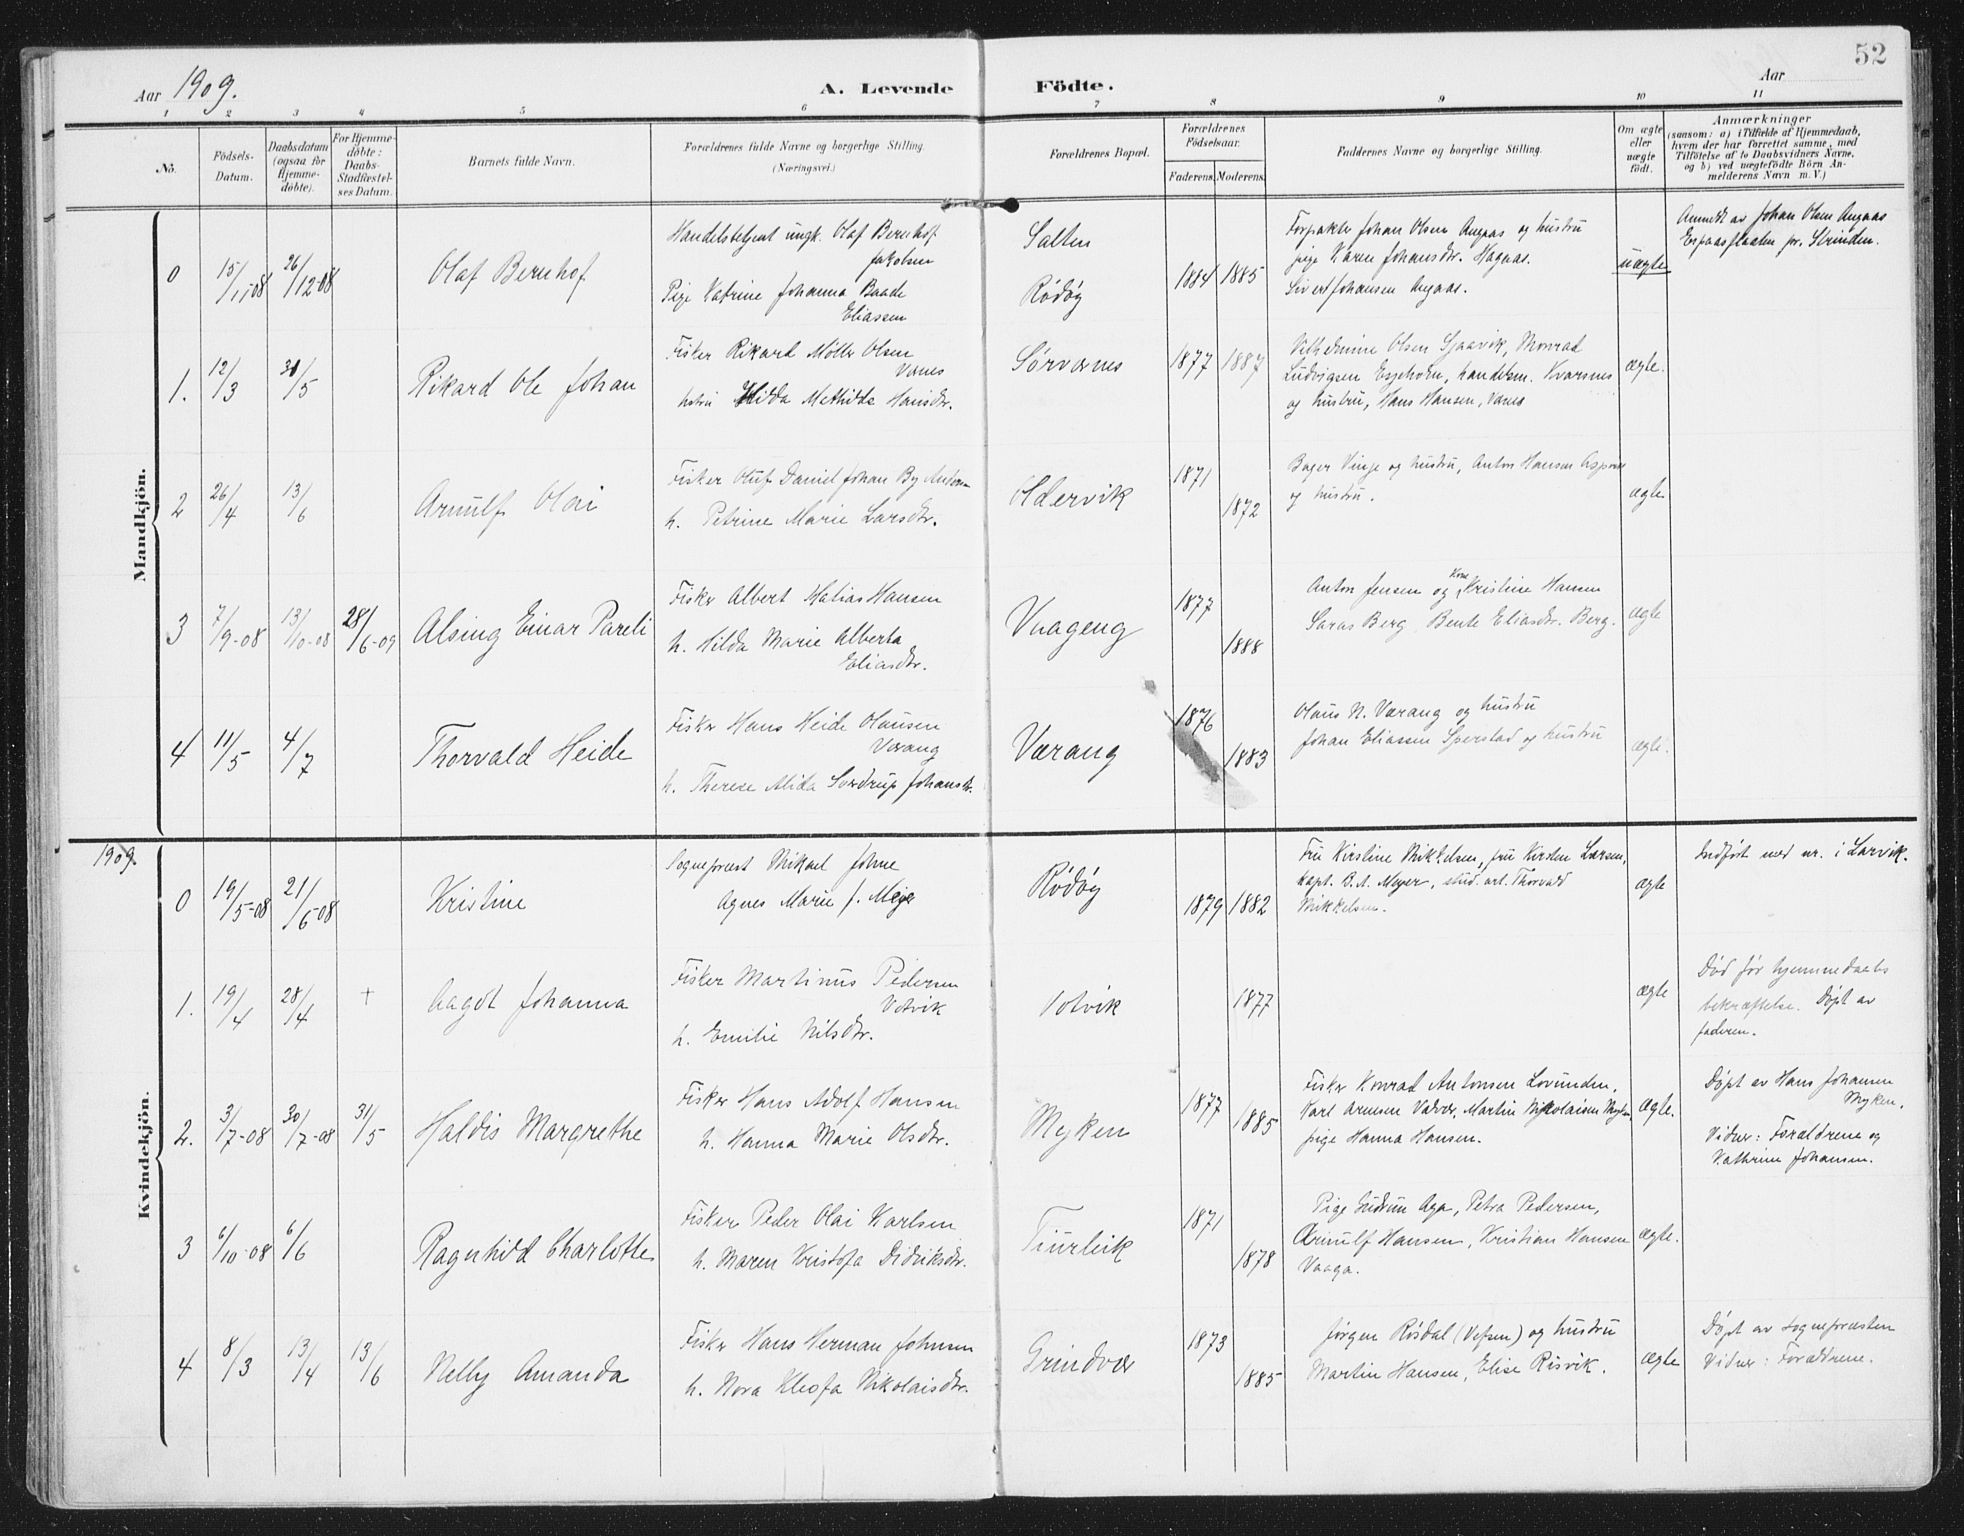 52
Aar 1909.
A. Levende Födte.
Aar
1 2 3 4 5 6 7 8 9 10 11
No.
Födsels-Datum.
Daabsdatum (ogsaa för Hjemme-döbte).
For Hjemme-döbte: Daabs-Stadfæstel-ses Datum.
Barnets fulde Navn.
Forældrenes fulde Navne og borgerlige Stilling.
(Næringsvei.)
Forældrenes Bopæl.
Forældrenes Födselsaar.
Faderens. Moderens.
Faddernes Navne og borgerlige Stilling.
Om ægte eller uægte födt.
Anmærkninger
(saasom: a) i Tilfælde af Hjemmedaab,
hvem der har forrettet samme, med
Tilföielse af to Daabsvidners Navne,
og b) ved uægtefödte Börn An-
melderens Navn m. V.)
Mandkjön.
0 15/11 08 26/12-08 Olaf Bernhof
Handelsbetjent ungk. Olaf Bernhof
Jakobsen
Pige Katrine Johanna Baade
Eliassen
Salten
Rödöy
1884 1885
Forpakter Johan Olsen Angaas og hustru
pige Karen Johansdtr. Hagaas.
Sivert Johansen Angaas.
uægte
Anmeldt av Johan Olsen Angaas
Espaasflaaten pr. Strinden.
1. 12/3 30/5 Rikard Ole Johan
Fisker Rikard Möller Olsen
Vanes
hstru Hilda Mathilde Hansdtr.
Sörvernes
1877 1887
Vilhelmine Olsen Sjaavik, Monrad
Ludvigsen Esjeholm, handelsm. Kvarsnes
og hustru, Hans Hansen, Vanes
ægte.
2 26/4 13/6 Arnulf Olai
Fisker Oluf Daniel Johan By Antonsen
h. Petrine Marie Larsdtr.
Oldervik
1871 1872
Bager Vinje og hustru, Anton Hansen
og hustru.
ægte
3 7/9-08 13/10-08 28/6-09 Alsing Einar Pareli
Fisker Albert Matias Hansen
h. Hilda Marie Alberta
Eliasdtr.
Vaageng
1877 1888
Anton Jensen og Kone Kristine Hansen
Saras Berg, Bente Eliasdtr. Berg.
ægte
4 11/5 4/7 Thorvald Heide
Fisker Hans Heide Olausen
Værang
h. Therese Alida Sverdrup Johansdtr.
Værang
1876 1883
Olaus N. Værang og hustru
Johan Eliassen Sperstad og hustru
ægte.
1909.
Kvindekjön.
0 19/5-08 21/6-08 Kristine
Sogneprest Mikael Johne
Agnes Marie f. Meyer
Rödöy
1879 1882
Fru Kirstine Mikkelsen, fru Kirsten Larsen,
kapt. B. A. Meyer, stud. art. Thorvald
Mikkelsen.
ægte
Indført med nr. i Larvik.
1. 19/4 28/4 + Aagot Johanna
Fisker Martinus Pedersen
Votvik
h. Emilie Nilsdtr.
Votvik
1877
ægte
Död för hjemmedaabs
bekræftelse. Döpt av
faderen.
2. 3/7-08 30/7-08 31/5 Haldis Margrethe
Fisker Hans Adolf Hansen
h. Hanna Marie Olsdtr.
Myken
1877 1885
Fisker Konrad Antonsen Lovunden,
Karl Arnesen Valvær, Martin Nikolaisen Myken,
pige Hanna Hansen.
ægte.
Döpt av Hans Johansen
Myken.
Vidner: Forældrene og
Kathrine Johansen.
3 6/10-08 6/6 Ragnhild Charlotte
Fisker Peder Olai Karlsen
h. Maren Kristofa Didriksdtr.
Tjurleik
1871 1878
Pige Gudrun Aga, Petra Pedersen,
Arnulf Hansen, Kristian Hansen
Vaaga.
ægte.
4 8/3 13/4 13/6 Nelly Amanda
Fisker Hans Herman Johnsen
h. Nora Kleofa Nikolaisdtr.
Grindvær
1873 1885
Jörgen Rösdal (Vefsen) og hustru
Martin Hansen, Elise Risvik.
ægte
Döpt av sognepræsten
Vidner: Forældrene.